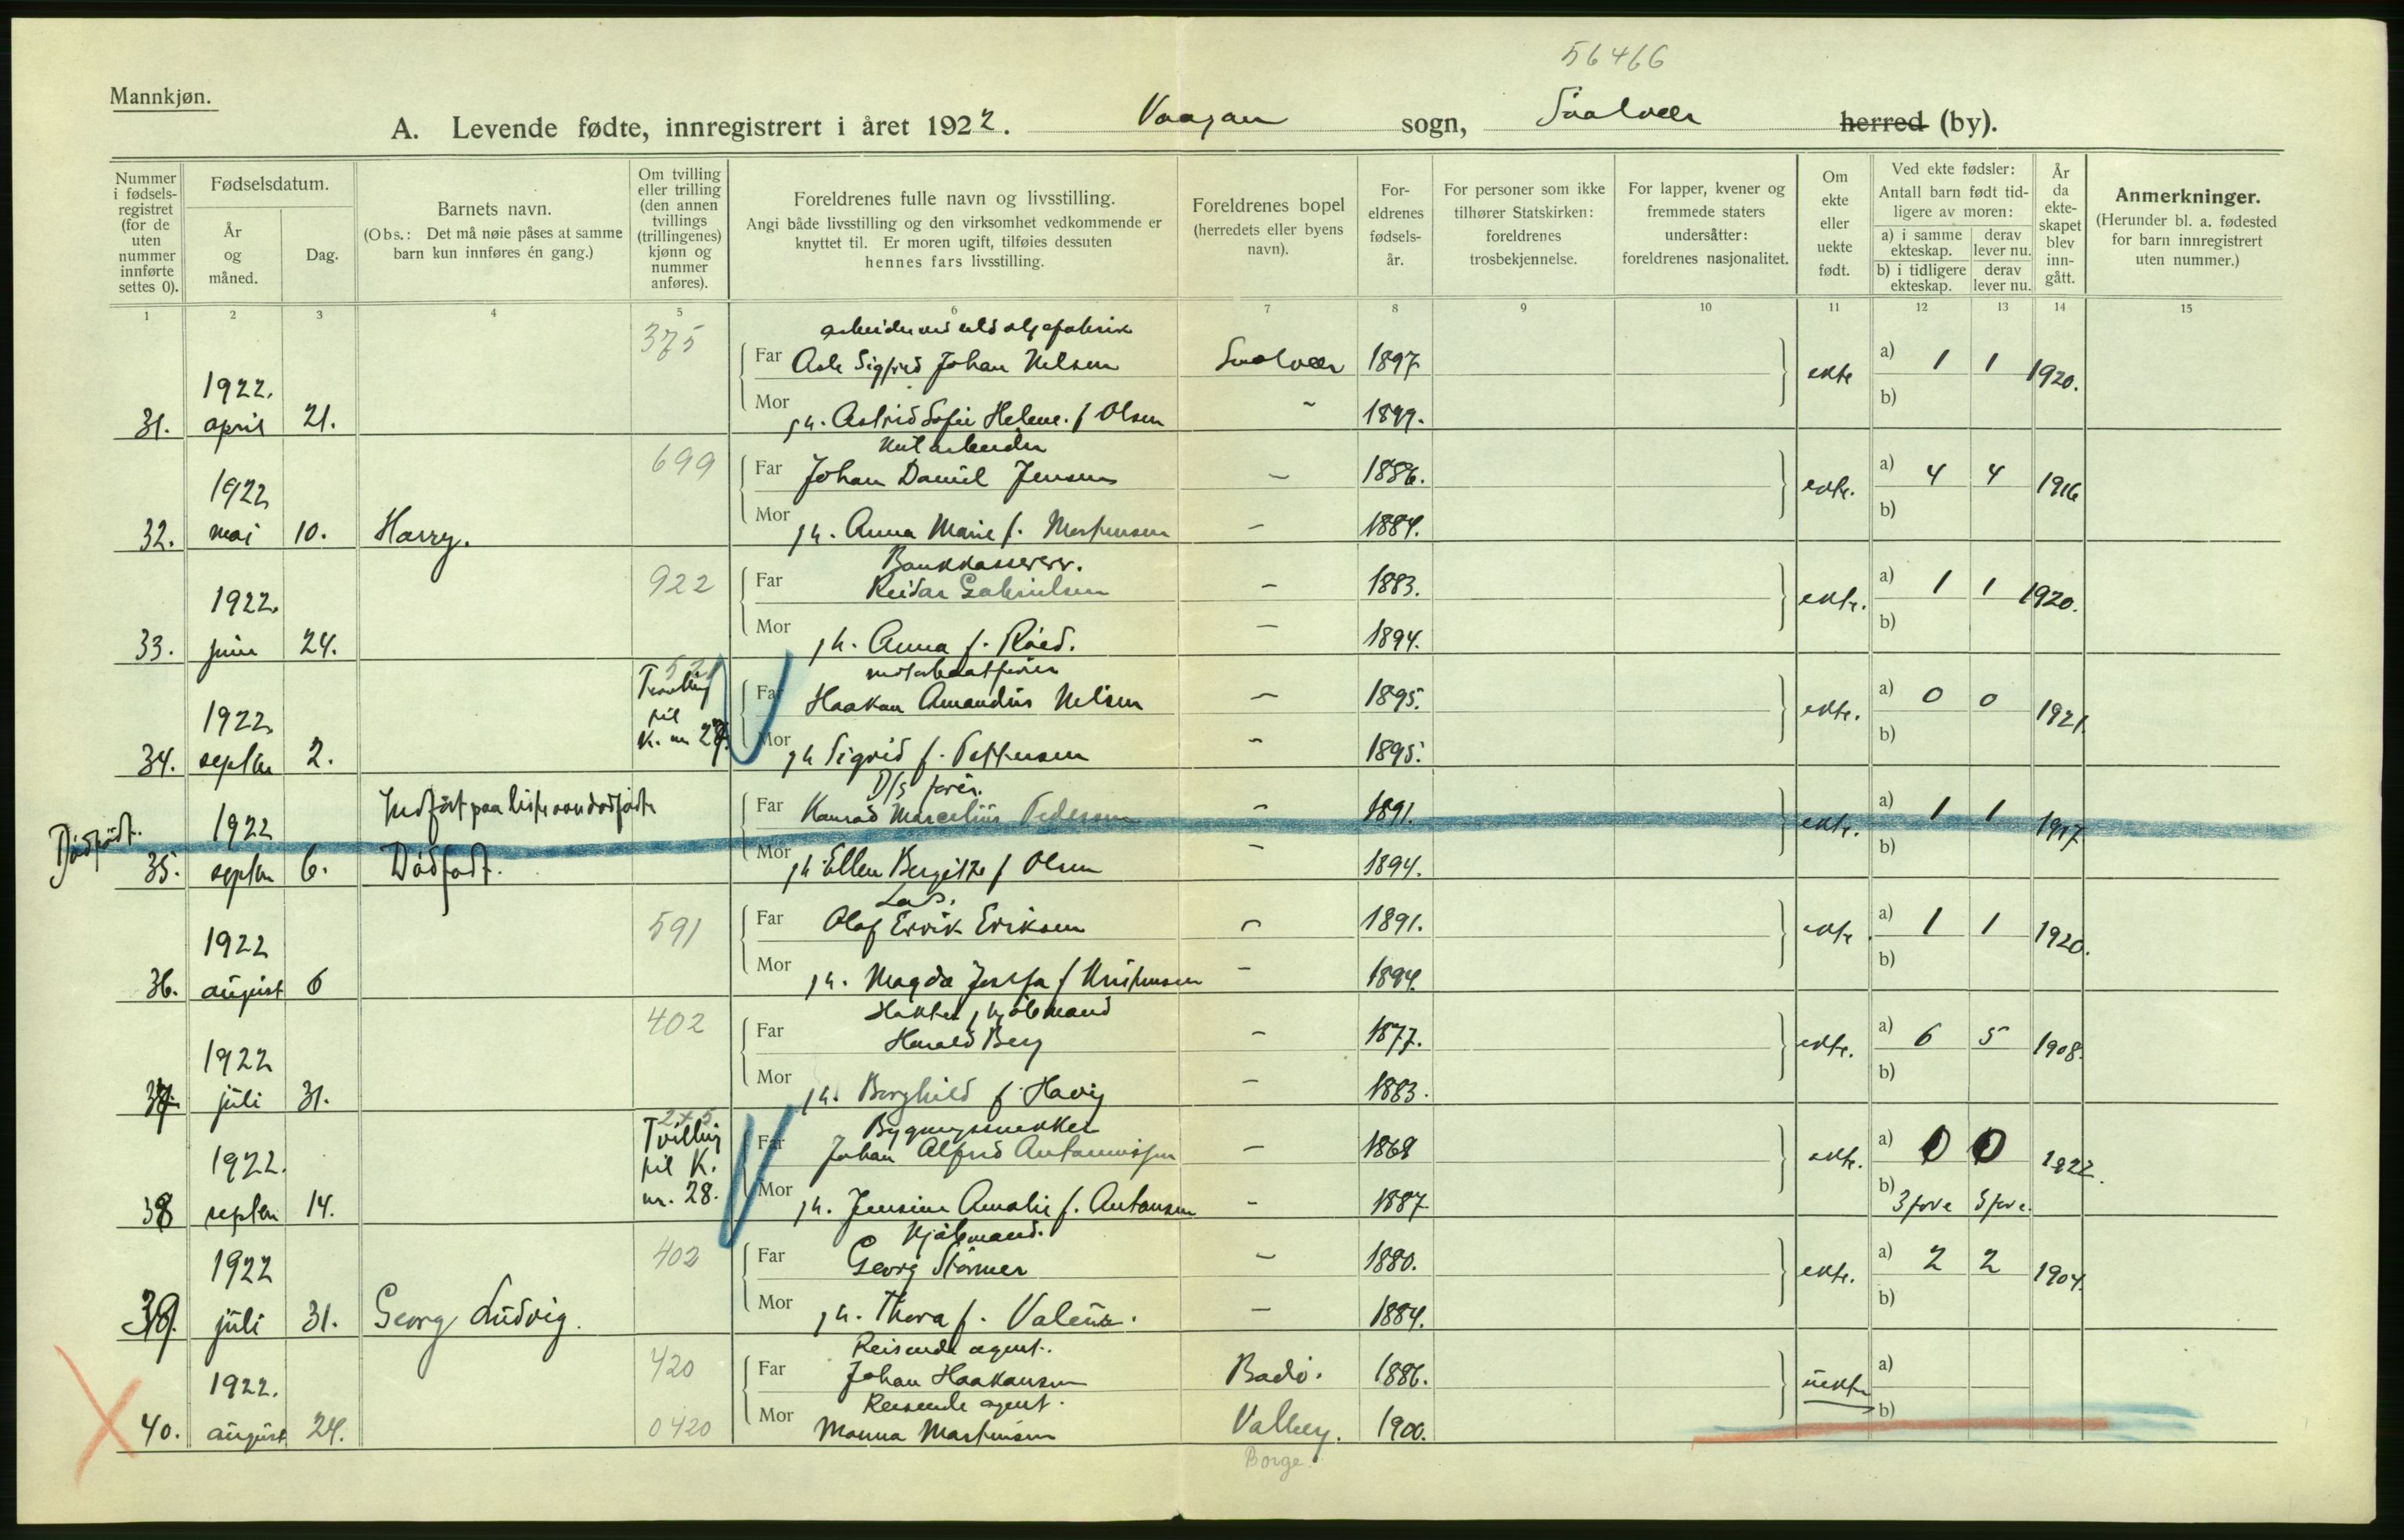 56466
Mannkjøn.
A. Levende fødte, innregistrert i året 1922. Vaagan sogn, Svolvær herred (by).
Nummer i fødselsregistret (for de uten nummer innførte settes 0).
Fødselsdatum.
År og måned.
Dag.
Barnets navn.
(Obs.: Det må nøie påses at samme barn kun innføres én gang.)
Om tvilling eller trilling (den annen tvillings (trillingenes) kjønn og nummer anføres).
Foreldrenes fulle navn og livsstilling.
Angi både livsstilling og den virksomhet vedkommende er knyttet til. Er moren ugift, tilføies dessuten hennes fars livsstilling.
Foreldrenes bopel (herredets eller byens navn).
Foreldrenes fødselsår.
For personer som ikke tilhører Statskirken: foreldrenes trosbekjennelse.
For lapper, kvener og fremmede staters undersåtter: foreldrenes nasjonalitet.
Om ekte eller uekte født.
Ved ekte fødsler:
Antall barn født tidligere av moren:
a) i samme ekteskap. derav lever nu.
b) i tidligere ekteskap. derav lever nu.
År da ekteskapet blev inngått.
Anmerkninger.
(Herunder bl. a. fødested for barn innregistrert uten nummer.)
1 2 3 4 5 6 7 8 9 10 11 12 13 14 15
375
Far Sigfred Johan Nilsen Svolvær 1897
31. 1922. april 21. ekte a) 1 1 1920.
Mor h. Astrid Sofie Helene f Olsen - 1899. b)
699
Far Johan Daniel Jensen - 1886.
32. 1922 mai 10. Harry. ekte. a) 4 4 1916
Mor h. Anna Marie f. Mortensen - 1884. b)
922 Bankkasserer.
Far Reidar Gabrielsen - 1883.
33. 1922. juni 24. ekte. a) 1 1 1920.
Mor h. Anna f. Röed. - 1894. b)
Tvilling til K. nr 27.
Far Haakon Amandus Nilsen - 1895.
34. 1922 septbr 2. ekte. a) 0 0 1921.
Mor h Sigrid f. Pettersen - 1895. b)
Indført paa liste over dødfødte
D/S fører.
Far Konrad Marcelius Pedersen - 1891.
Dødfødt. 35. 1922 septbr 6. Dødfødt. ekte. a) 1 1 1917
Mor h. Ellen Bergitte f Olsen - 1894. b)
591 Los.
Far Olaf Ervik Eriksen - 1891.
36. 1922 august 6 ekte. a) 1 1 1920.
Mor h. Magda Josefa f Kristensen - 1894. b)
402
Far Harald Berg - 1877.
37. 1922 juli 31. ekte. a) 6 5 1908.
Mor h. Borghild f. Havig - 1883. b)
245 Tvilling til K. nr. 28. Bygningssnekker
Far Johan Alfred Antonniussen - 1868
38 1922. septbr 14. ekte. a) 0 0 1922.
Mor h. Jensine Amalie f. Antonsen - 1887 b)
402 Kjøbmand.
Far Georg Störmer - 1880.
39. 1922 juli 31. Georg Ludvig. ekte. a) 2 2 1904.
Mor h. Thora f. - 1884. b)
420 Reisende agent.
Far Johan Haakonsen Bodö. 1886.
40. 1922. august 24. uekte a)
0420 Reisende agent.
Mor Martinsen Valberg. 1900. b)
Borge.